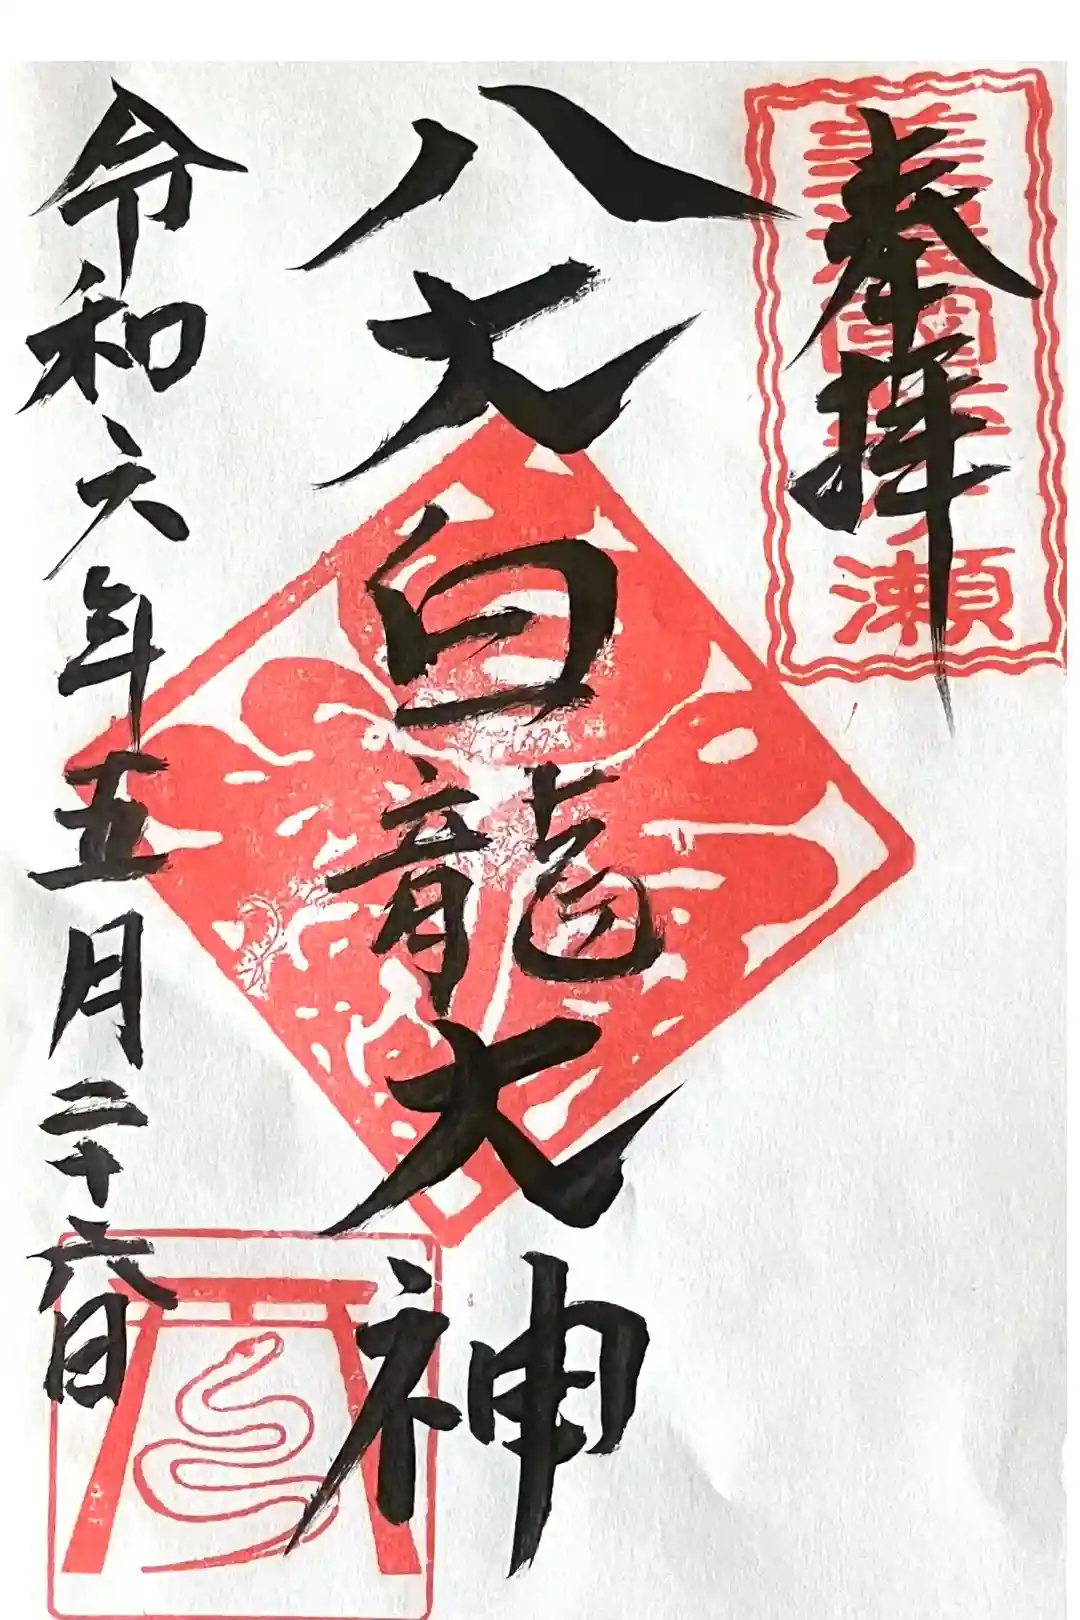 奉拝
八大白龍大神
令和六年五月二十六日
瀬